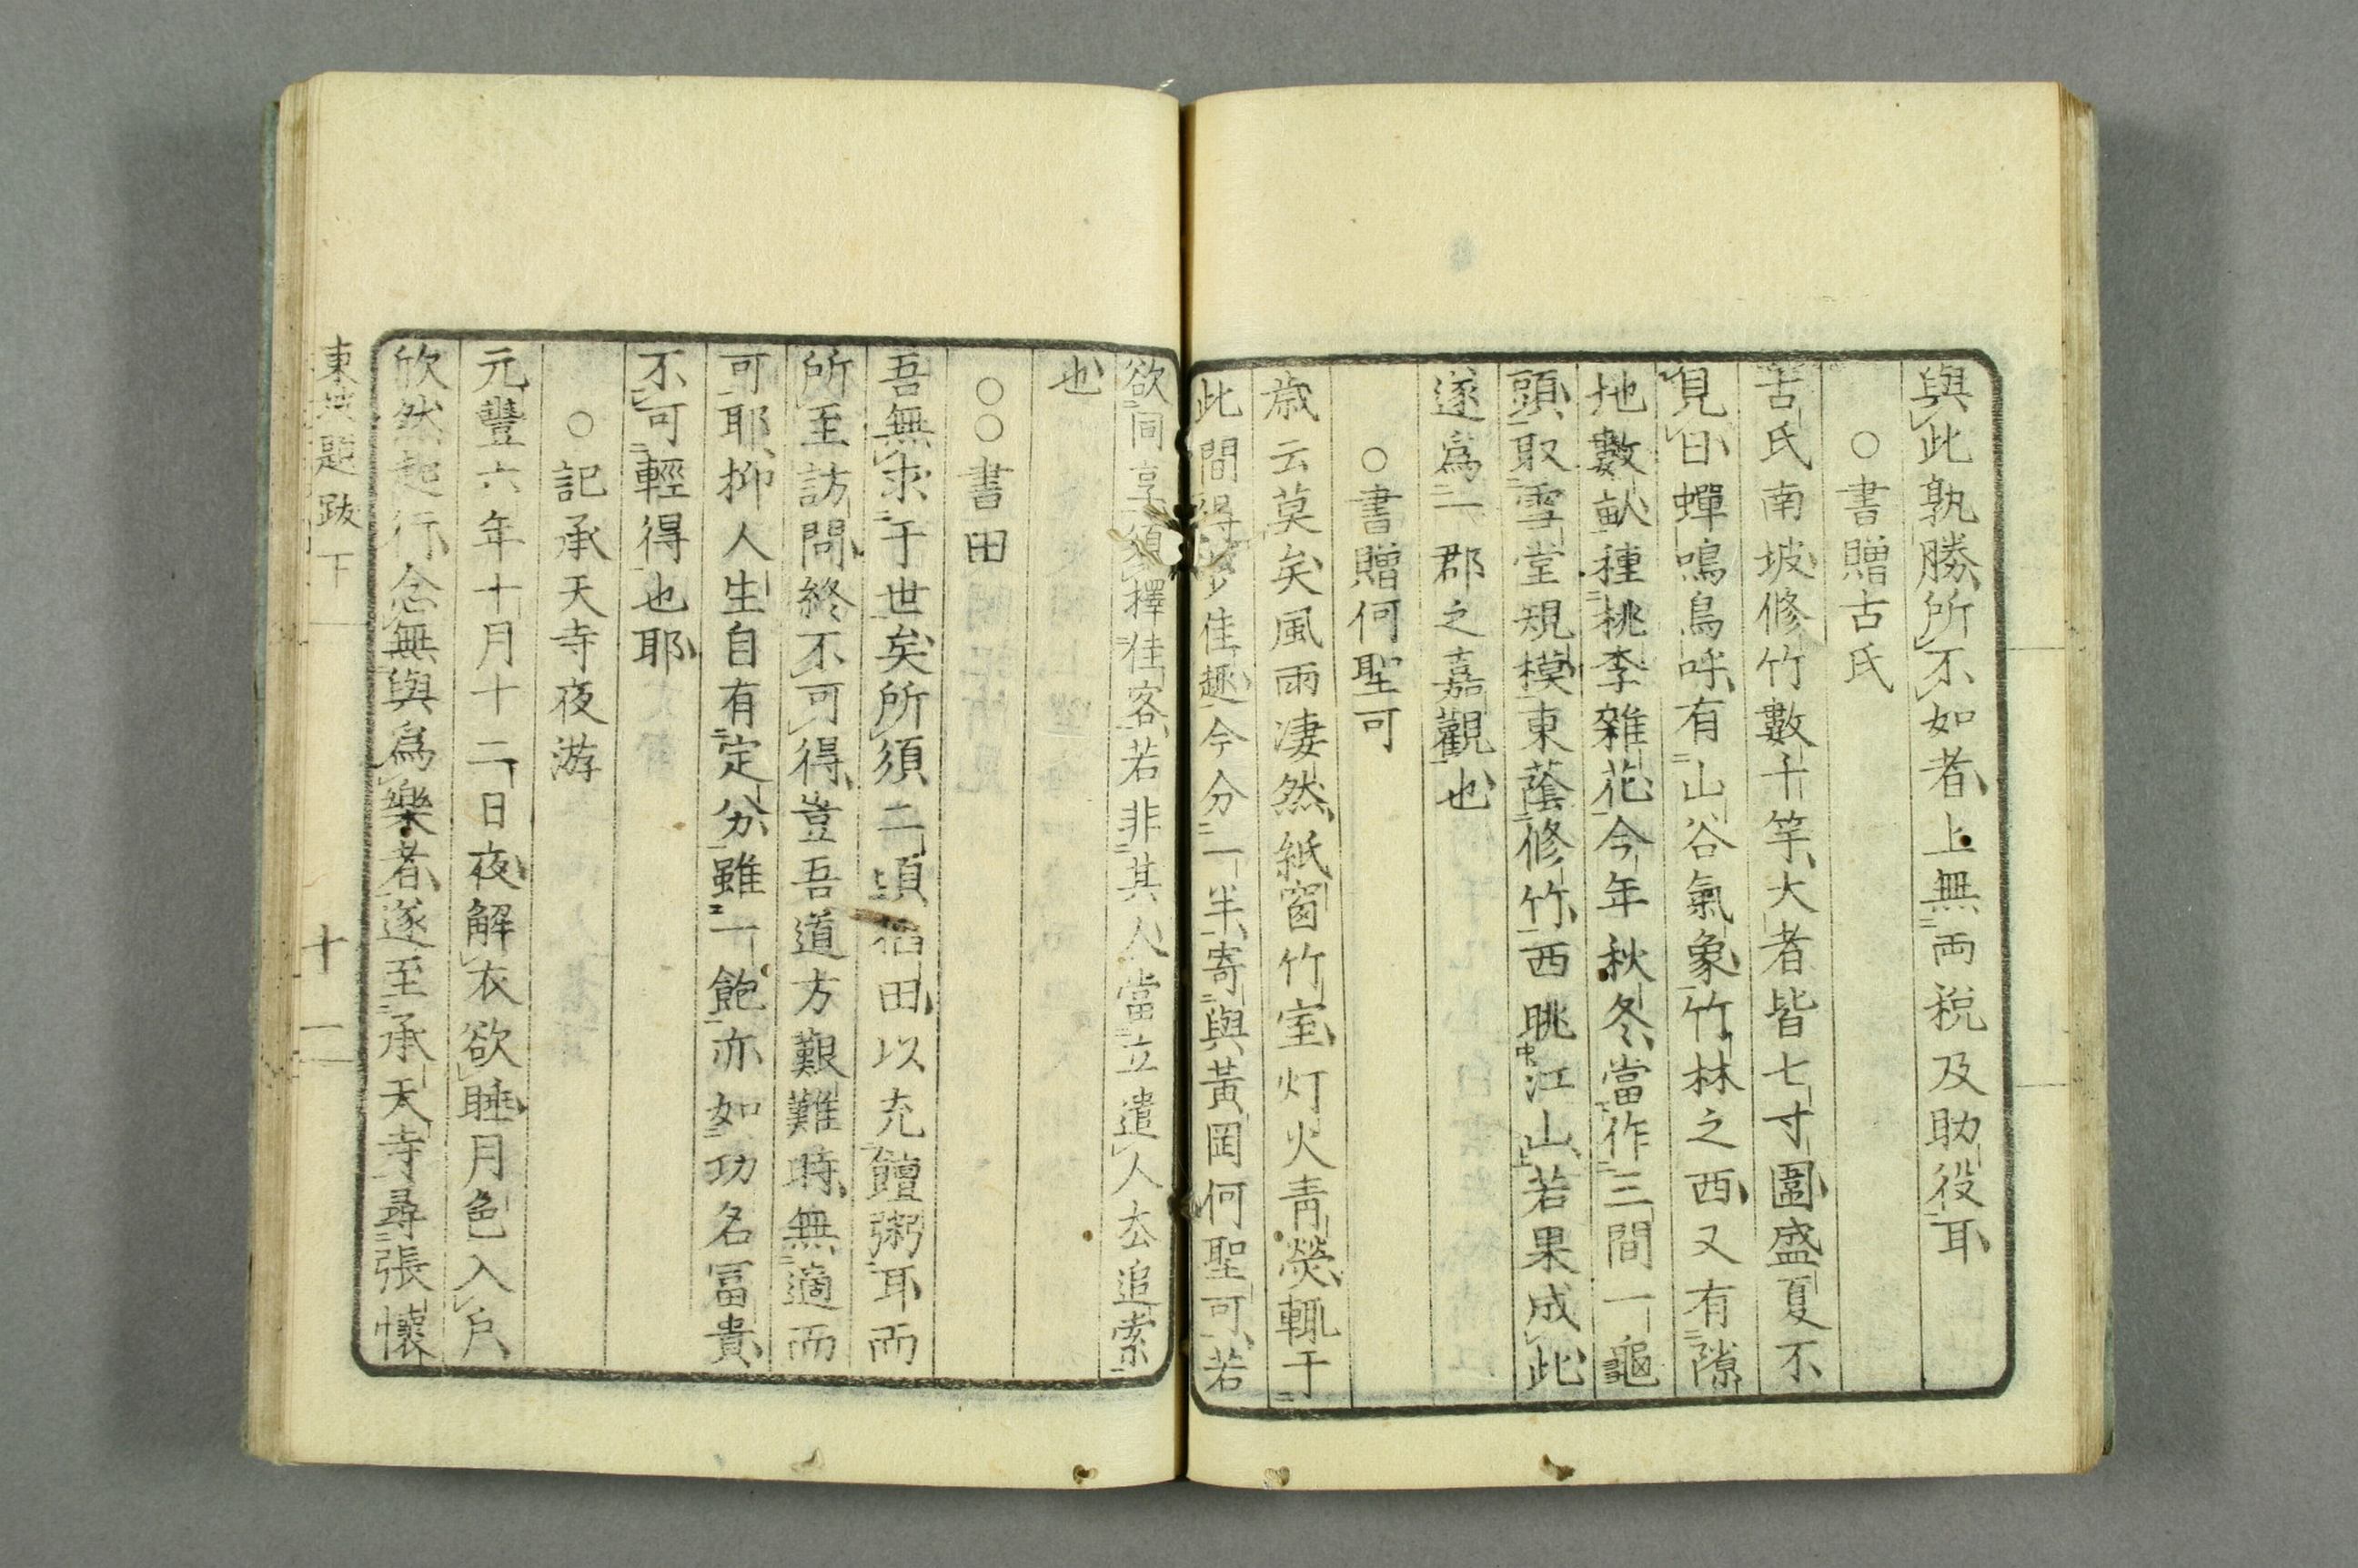 與此孰勝所不如者上無両税及助役耳
○書贈古氏
古氏南坡修竹數十竿大者皆七寸圍盛夏不
見日蟬鳴鳥呼有山谷氣象竹林之西又有隙
地數畝種桃李雜花今年秋冬當作三間一龜
頭取雪堂規模東蔭修竹西眺江山若果成此
遂爲一郡之嘉觀也
○書贈何聖可
歳云莫矣風雨凄然紙窗竹室灯火青熒輒于
此間得少佳趣今分一半寄與黃岡何聖可若
欲同享須擇佳客若非其人當立遣人厺追索
也
○○書田
吾無求于世矣所須二頃稻田以充饘粥耳而
所至訪問終不可得豈吾道方艱難時無適而
可耶抑人生自有定分雖一飽亦如功名冨貴
不可輕得也耶
○記承天寺夜游
元豐六年十月十二日夜解衣欲睡月色入户
欣然起行念無與爲樂者遂至承天寺尋張懷
東坡題跋下
十一